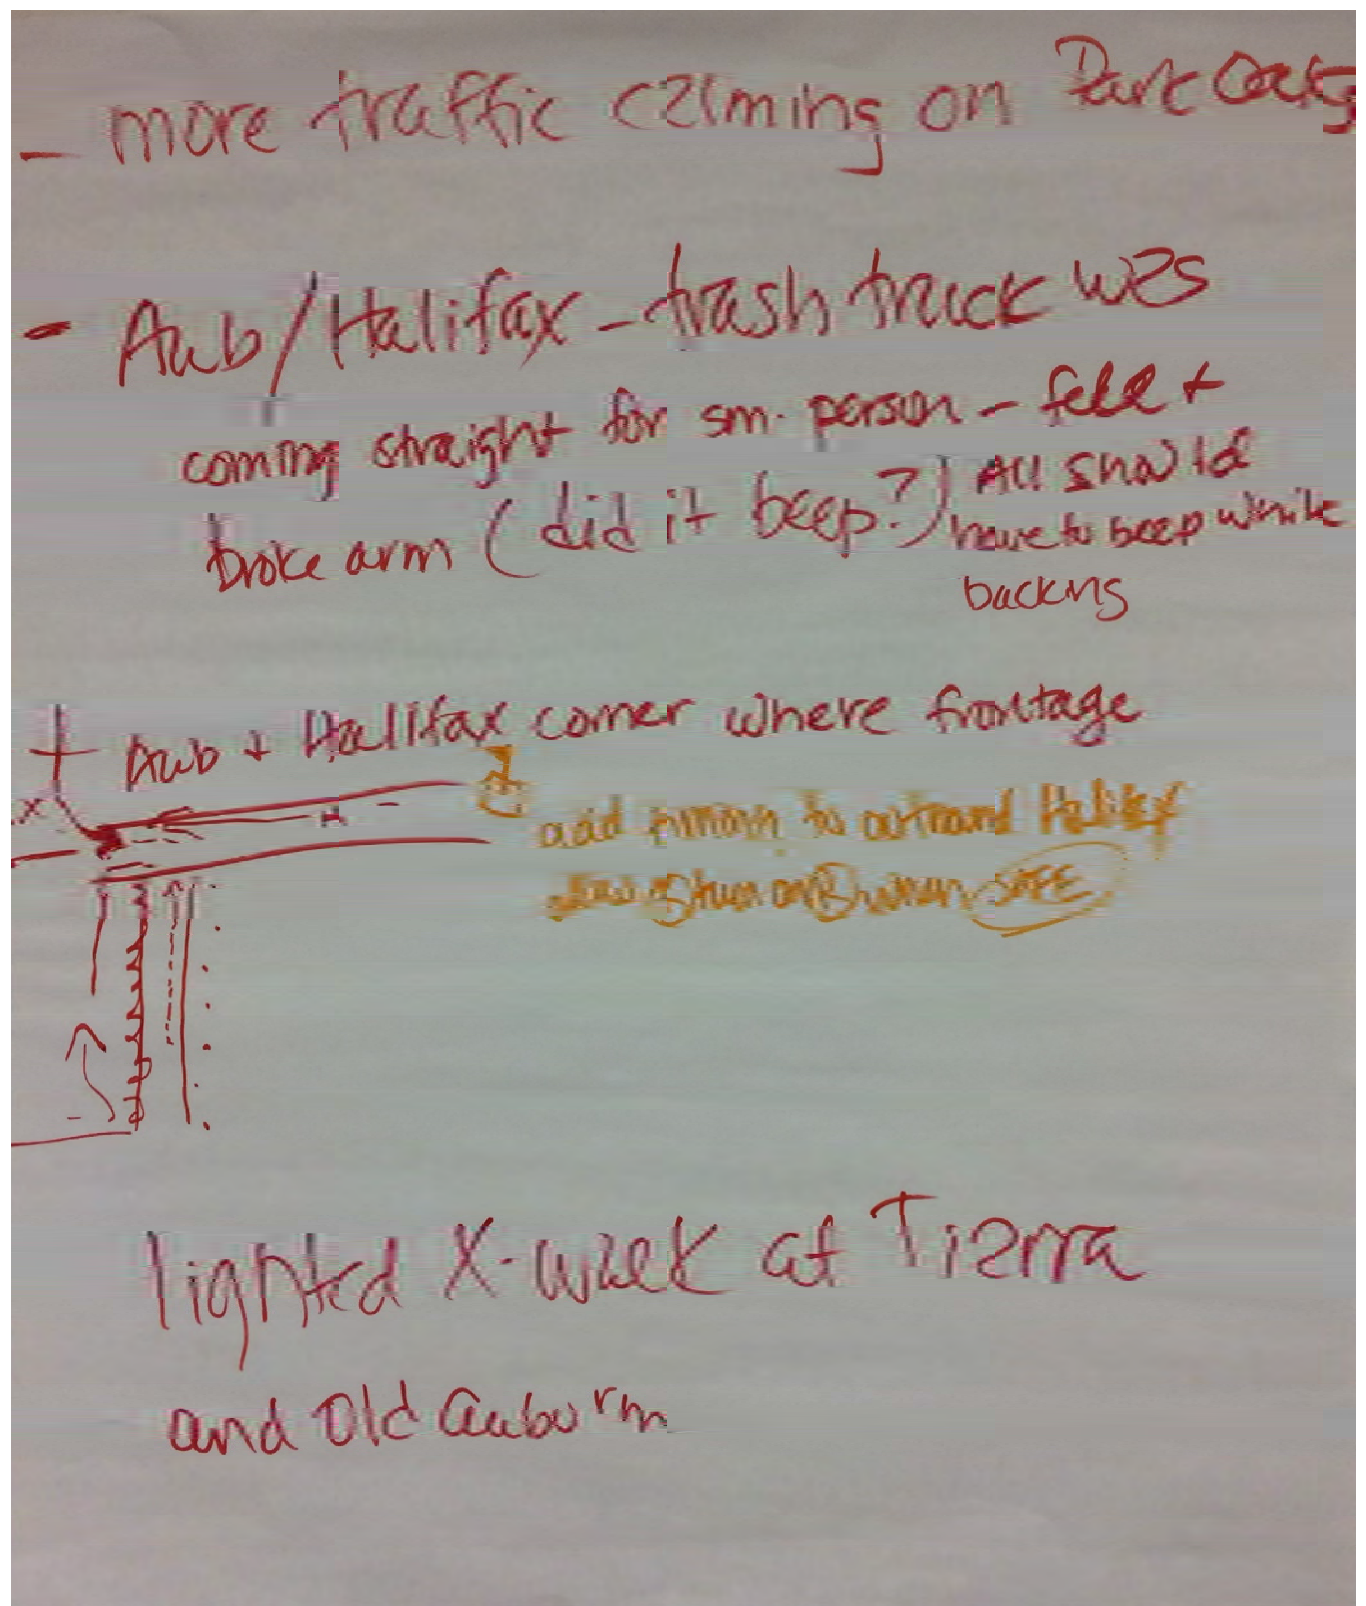 - more traffic calming on Park Oaks
- Aub/Halifax - trash truck was
coming straight for sm. person - fell +
broke arm (did it beep?) All should
have to beep while
backing
+ Aub + Halifax corner where frontage
X
add to Halifax
turn when SAFE
lighted X-walk at Tierra
and Old Auburn